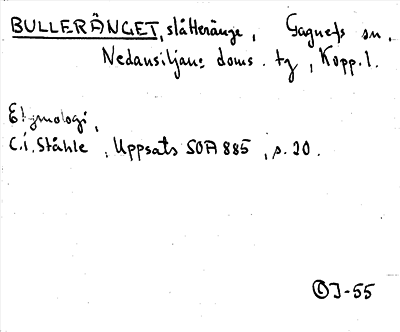 BULLERÄNGET, slåtteränge, Gagnefs sn.
Nedansiljans doms. tg, Kopp. l.
Etymologi,
C.I. Ståhle, Uppsats SOA 885, s. 20.
J-55